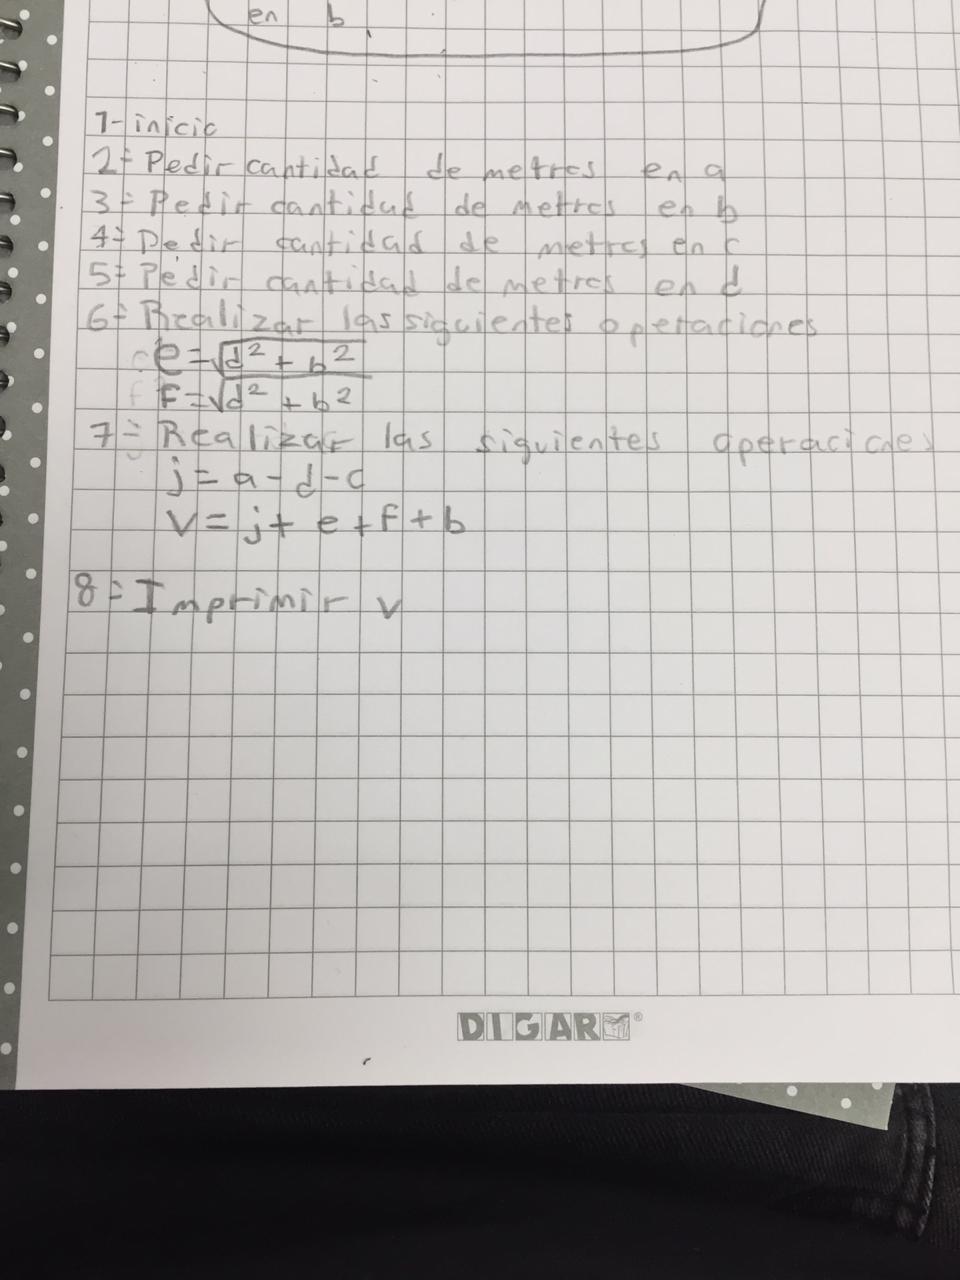 en b
1- inicio
2- Pedir cantidad de metros en a
3- Pedir cantidad de metros en b
4- Pedir cantidad de metros en c
5- Pedir cantidad de metros en d
6- Realizar las siguientes operaciones
e=√d²+b²
F=√d²+b²
7- Realizar las siguientes operaciones
j=a-d-c
V=j+e+f+b
8- Imprimir v
DIGAR®